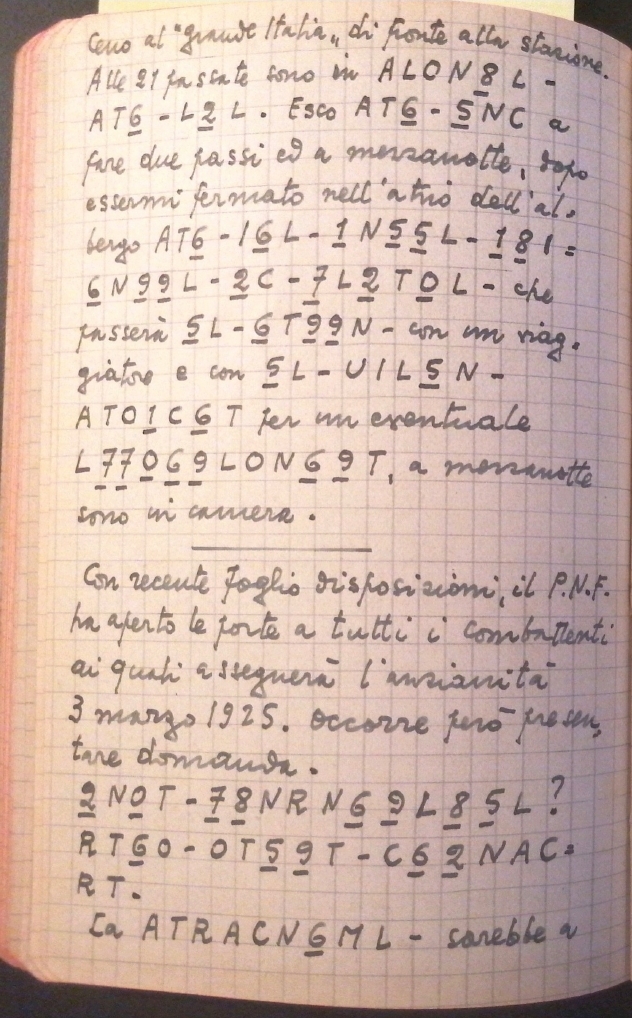 Ceno al "grande Italia„ di fronte alla stazione.
Alle 21 passate sono in ALON8L -
AT6 - L2L. Esco AT6 - 5NC a
fare due passi ed a mezzanotte, dopo
essermi fermato nell'atrio dell'al=
bergo AT6 - I6L - 1N55L - 181=
6N99L - 2C - 7L2T0L - che
passerà 5L - 6T99N - con un viag=
giatore e con 5L - UIL5N -
ATO1C6T per un eventuale
L77069LON69T, a mezzanotte
sono in camera.
Con recente Foglio disposizioni, il P.N.F.
ha aperto le porte a tutti i combattenti
ai quali assegnerà l'anzianità
3 marzo 1925. Occorre però presen=
tare domanda.
2NOT - 78NRN69L85L?
RT60 - OT59T - C62NAC=
RT.
La ATRACN6ML - sarebbe a